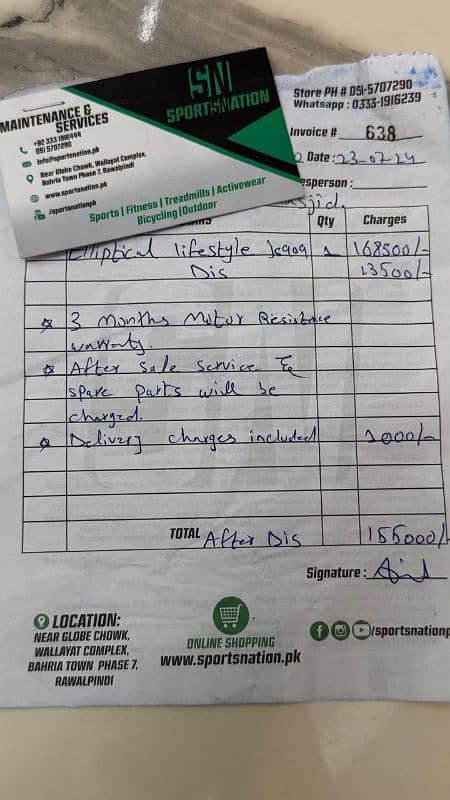 SN
SPORTSNATION
MAINTENANCE &
SERVICES
+92 333 1916444
051 5707290
info@sportsnation.pk
Near Globe Chowk, Wallayat Complex,
Bahria Town Phase 7, Rawalpindi
www.sportsnation.pk
/sportsnationpk
Sports | Fitness | Treadmills | Activewear
Bicycling | Outdoor
Store PH # 051-5707290
Whatsapp : 0333-1916239
Invoice # 638
Date : 23-07-24
esperson :
Qty Charges
Elliptical lifestyle 1 168500/-
Dis 13500/-
3 Months Motor Resistance
warranty.
After sale service &
spare parts will be
charged.
Delivery charges included
TOTAL After Dis 155000/-
Signature :
LOCATION:
NEAR GLOBE CHOWK,
WALLAYAT COMPLEX,
BAHRIA TOWN PHASE 7,
RAWALPINDI
ONLINE SHOPPING
www.sportsnation.pk
/sportsnationp